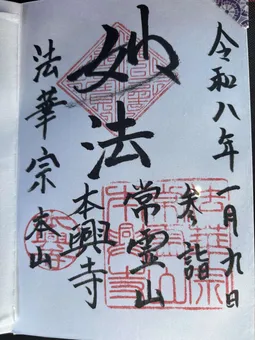 令和八年一月九日
参詣
妙法
常霊山
本興寺
法華宗
本山